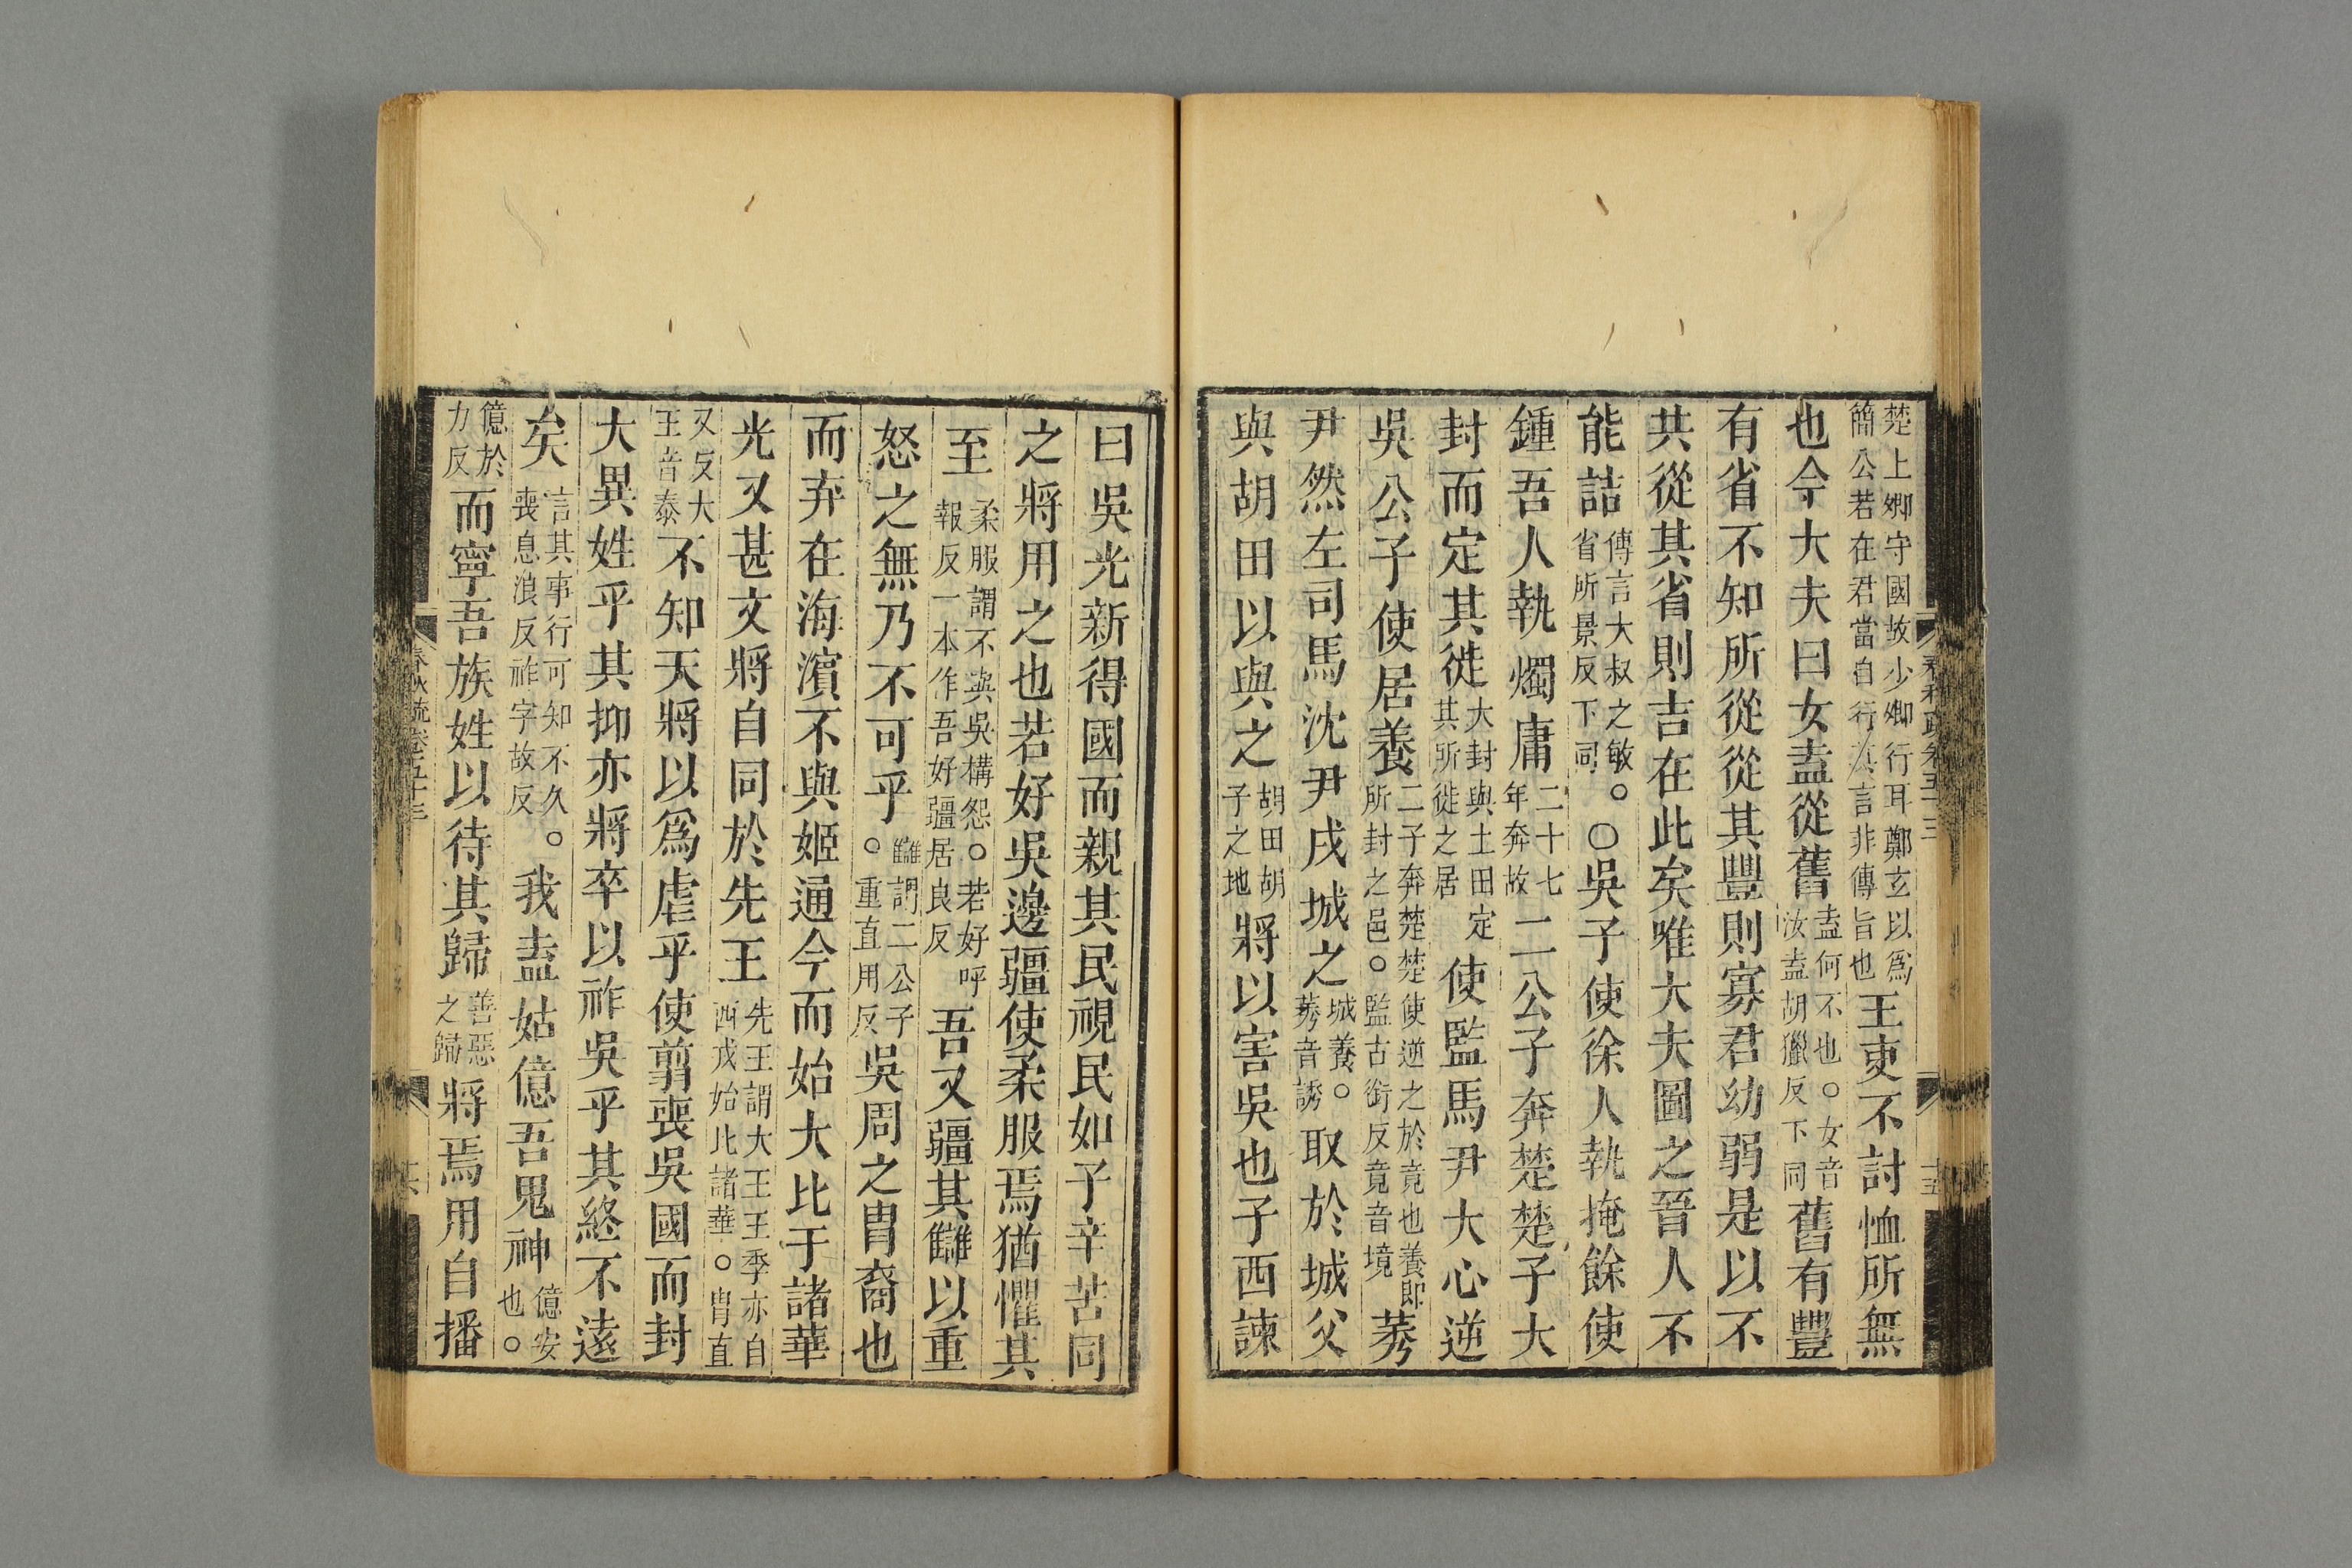 楚上卿守國故少卿行耳鄭玄以為簡公若在君當自行其言非傳旨也王吏不討恤所無
也今大夫曰女盍從舊盍何不也○女音汝盍胡獵反下同舊有豐
有省不知所從從其豐則寡君幼弱是以不
共從其省則吉在此矣唯大夫圖之晉人不
能詰傳言大叔之敏○省所景反下同○吳子使徐人執掩餘使
鍾吾人執燭庸二十七年奔故二公子奔楚楚子大
封而定其徙大封與土田定其所徙之居使監馬尹大心逆
吳公子使居養二子奔楚楚使逆之於竟也養即所封之邑○監古銜反竟音境莠
尹然左司馬沈尹戌城之城養○莠音誘取於城父
與胡田以與之胡田胡子之地將以害吳也子西諫
曰吳光新得國而親其民視民如子辛苦同
之將用之也若好吳邊疆使柔服焉猶懼其
至柔服謂不與吳構怨○若好呼報反一本作吾好疆居良反吾又疆其讎以重
怒之無乃不可乎讎謂二公子○重直用反吳周之冑裔也
而弃在海濱不與姬通今而始大比于諸華
光又甚文將自同於先王先王謂大王王季亦自西戎始比諸華○冑直
又反大王音泰不知天將以為虐乎使翦喪吳國而封
大異姓乎其抑亦將卒以祚吳乎其終不遠
矣言其事行可知不久○喪息浪反祚字故反我盍姑億吾鬼神億安也○
億於力反而寧吾族姓以待其歸善惡之歸將焉用自播
春秋疏卷五十三